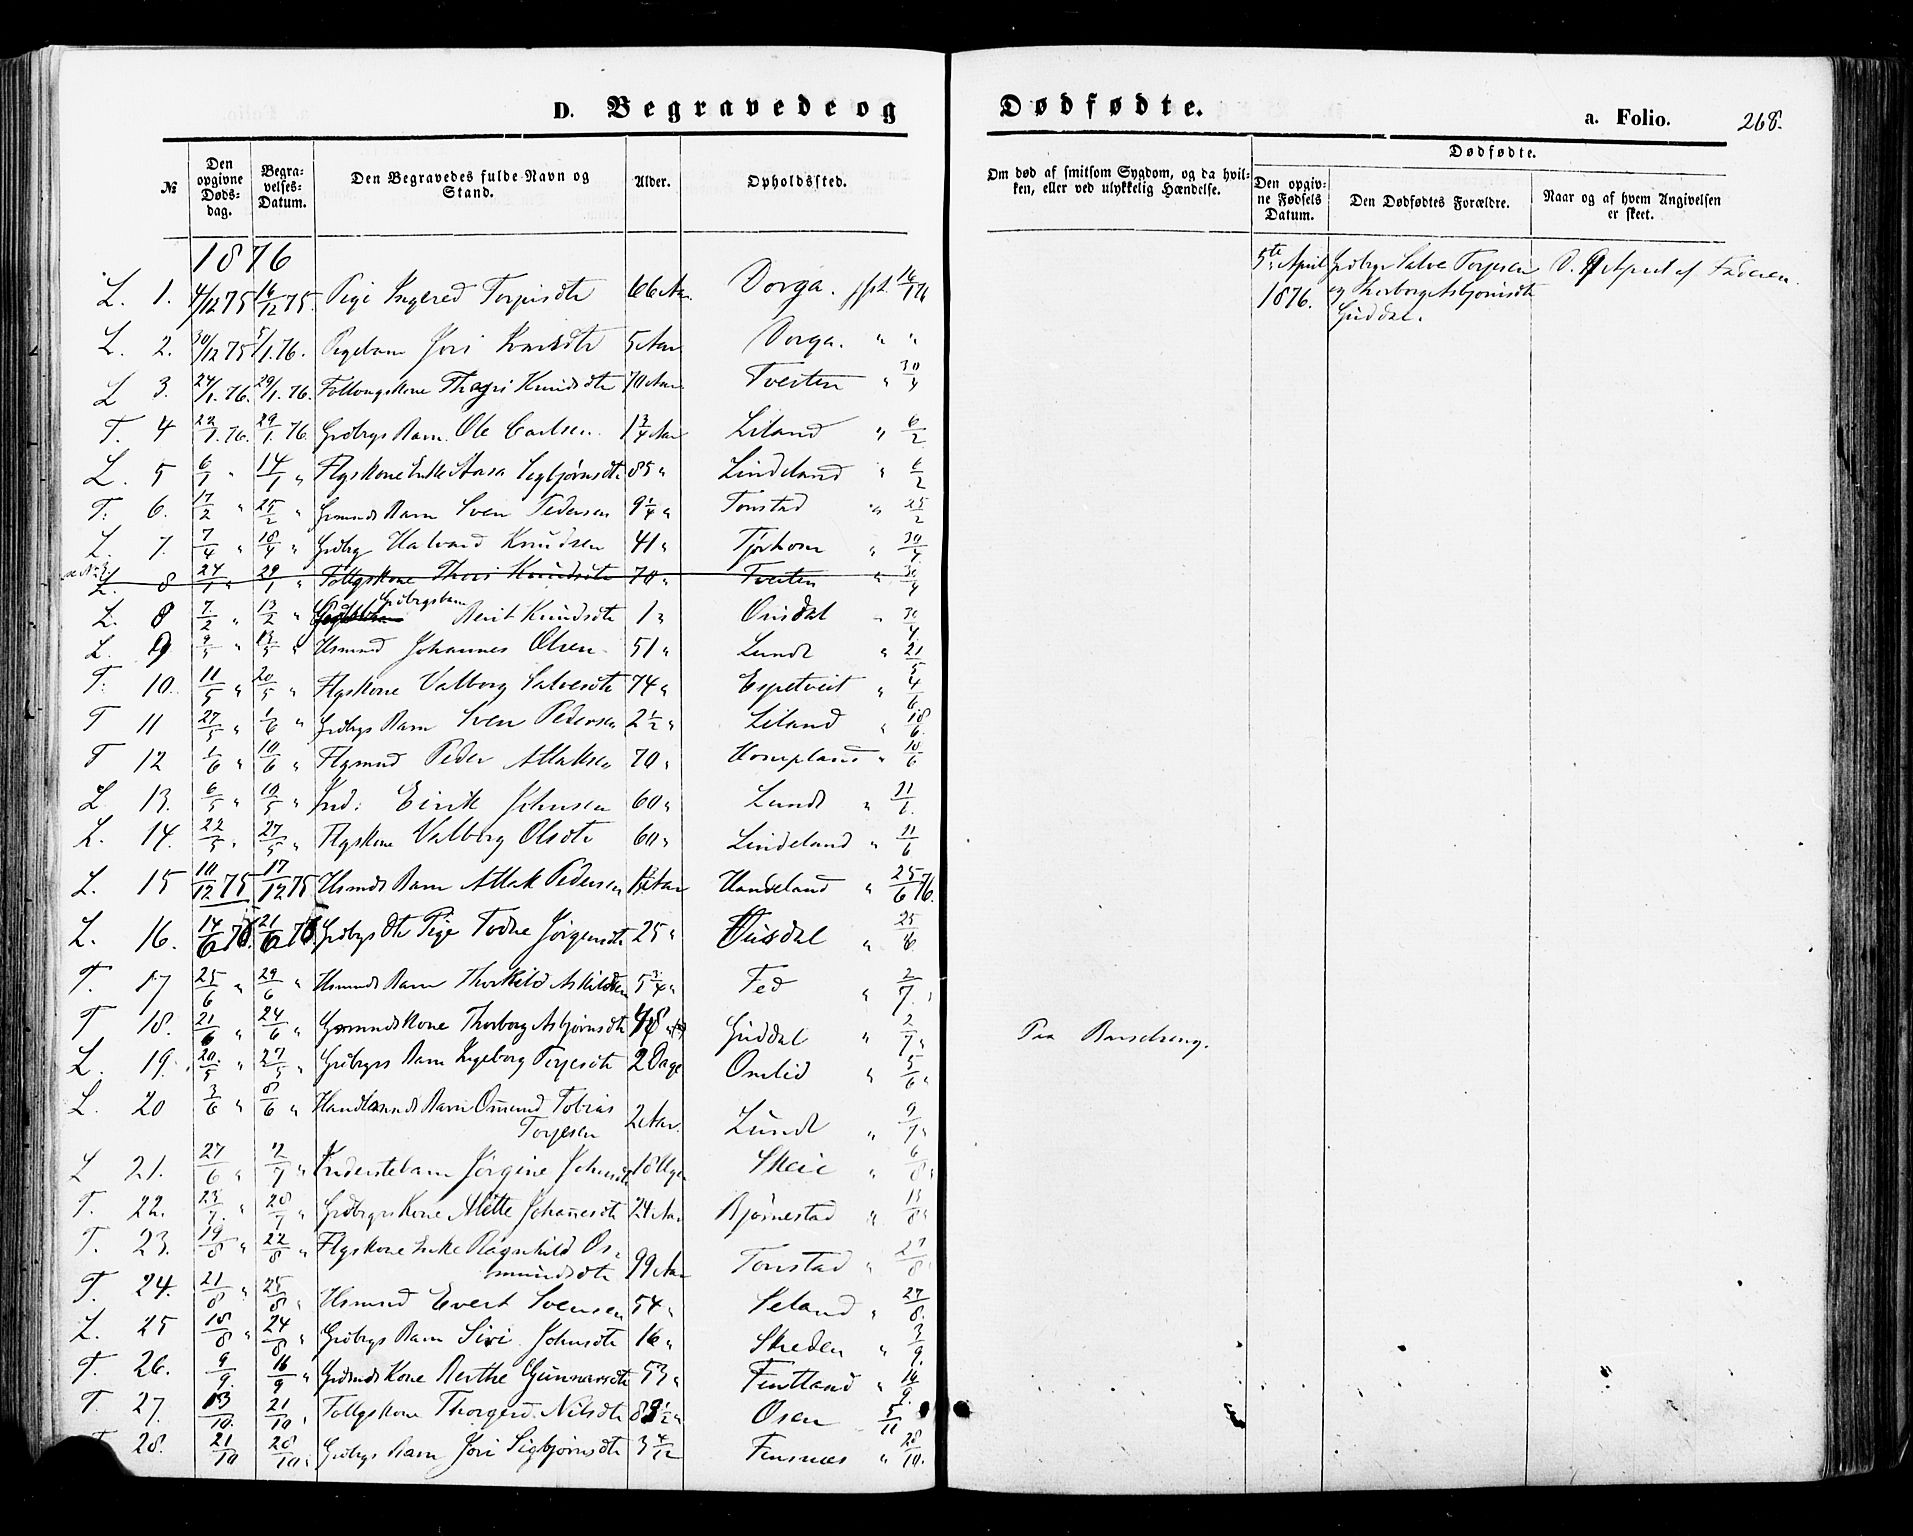 D. Begravede og Dødfødte.
a. Folio. 268.
№
Den opgivne Døds-dag.
Begra-velses-Datum.
Den Begravedes fulde Navn og Stand.
Alder.
Opholdssted.
Om død af smitsom Sygdom, og da hvil-ken, eller ved ulykkelig Hændelse.
Dødfødte.
Den opgiv-ne Fødsels Datum.
Den Dødfødtes Forældre.
Naar og af hvem Angivelsen er skeet.
1876
L. 1. 4/12 75 16/12 75. Pige Ingered Torjusdtr 66 Aar. Dorga. 16/1 76
L. 2. 30/12 75 5/1. 76. Pigebarn Jori 5 Aar Dorga. " "
L 3. 24/1. 76. 29/1. 76. Follougskone Thori Knudsdtr 70 Aar Tveiten " 30/4
T. 4 22/1. 76. 29/1. 76. Grdbrgs Barn. Ole Carlsen. 1 3/4 Aar Liland " 6/2
L. 5 6/1 " 14/1 " Flgskone Enke Aasa Sigbjørnsdtr 85 " Lindeland " 6/2
T. 6. 17/2 " 25/2 " Grmnds Barn Sven Pedersen 9 1/4 " Tonstad " 25/2
L. 7. 7/4 " 18/4 " Grdbrg Halvard Knudsen 41 " Tjørhom " 30/4
L. 8 24/1 " 29/1 " Follgskone Thori Knudsdtr 70 " Tveiten " 30/4
L. 8 7/2 " 13/2 " Grdbrgsbarn Berit Knudsdtr 1 " Ousdal " 30/4
L. 9 9/5 " 13/5 " Hsmnd Johannes Olsen 51 " Lunde " 21/5
T. 10. 11/5 " 20/5 " Flgskone Valborg Salvesdtr 74 " Espetveit " 4/6
T 11 27/5 " 1/6 " Grdbrgs Barn Sven Pedersen 2 1/2 " Liland " 18/6
T 12 1/6 " 10/6 " Flgmnd Peder Atlaksen 70 " Hompland " 10/6
L 13. 6/5 " 10/5 " Ind: Eirik Johnsen 60 " Lunde " 11/6.
L. 14. 22/5 " 27/5 " Flgskone Valborg Olsdtr 60 " Lindeland " 11/6
L. 15 10/12 75 17/12 75 Hsmnds Barn Atlak Pedersen Aar Haugeland " 25/6 76.
L. 16. 14/6 76. 21/6 76. Grdbrgs Dtr Pige Todne Jörgensdtr 25 " Ousdal " 25/6.
T. 17 25/6 " 29/6 " Hsmnds Barn Thorkild Askildsen 5 3/4 " Fed " 2/7.
T. 18. 21/6 " 24/6 " Grmndskone Thorborg Asbjørnsdtr 48 Guddal " 2/7 " Paa Barselseng.
L. 19. 20/5 " 27/5 " Grdbrgs Barn Ingeborg Torjesdtr 2 Dage Omlid " 5/6 "
L. 20 3/6 " 8/6 " Handlmnds Barn Osmund Tobias
Torjesen 2 Aar. Lunde " 9/7 "
L 21. 27/6 " 2/7 " Inderstebarn Jørgine Johnsdtr 18 Uger Skeie " 6/8 "
T. 22. 23/7. " 28/7 " Grdbrgrskone Mette Johannesdtr 24 Aar Bjørnestad " 13/8 "
T. 23. 19/8 " 22/8 " Flgskone Enke Ragnhild Os-
mundsdtr 99 Aar Tonstad " 27/8 "
T. 24. 21/8 " 25/8 " Hsmnd Evert Svensen 54 " Seland " 27/8.
L. 25 18/8 " 24/8 " Grdbrgs Barn Siri Johnsdtr 16 " Skreden " 3/9.
T. 26. 9/9. 16/9 " Grdmdskone Berthe Gunnarsdtr 53 " Fintland " 16/9.
T. 27. 13/10. 21/10 " Follgskone Thorgerd Nilsdtr 89 1/2 " Osen 5/11
T. 28. 21/10 28/10 " Grdbrgs Barn Jori Sigbjørnsdtr 3 4/12 Finsnæs " 28/10.
5te April
1876.
Grdbrgr Salve Torjesen
og Thorborg Asbjørnsdtr
Guddal.
D. 9 April af Faderen.